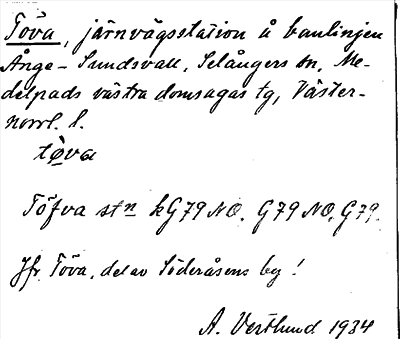 Töva, järnvägsstation å banlinjen
Ånge - Sundsvall, Selångers sn, Me-
delpads västra domsagas tg, Väster-
norrl. l.
tø̀va
Töfva stn kG79NO. G79NO, G79.
Jfr Töva, del av Söderåsens by!
A. Vestlund 1934